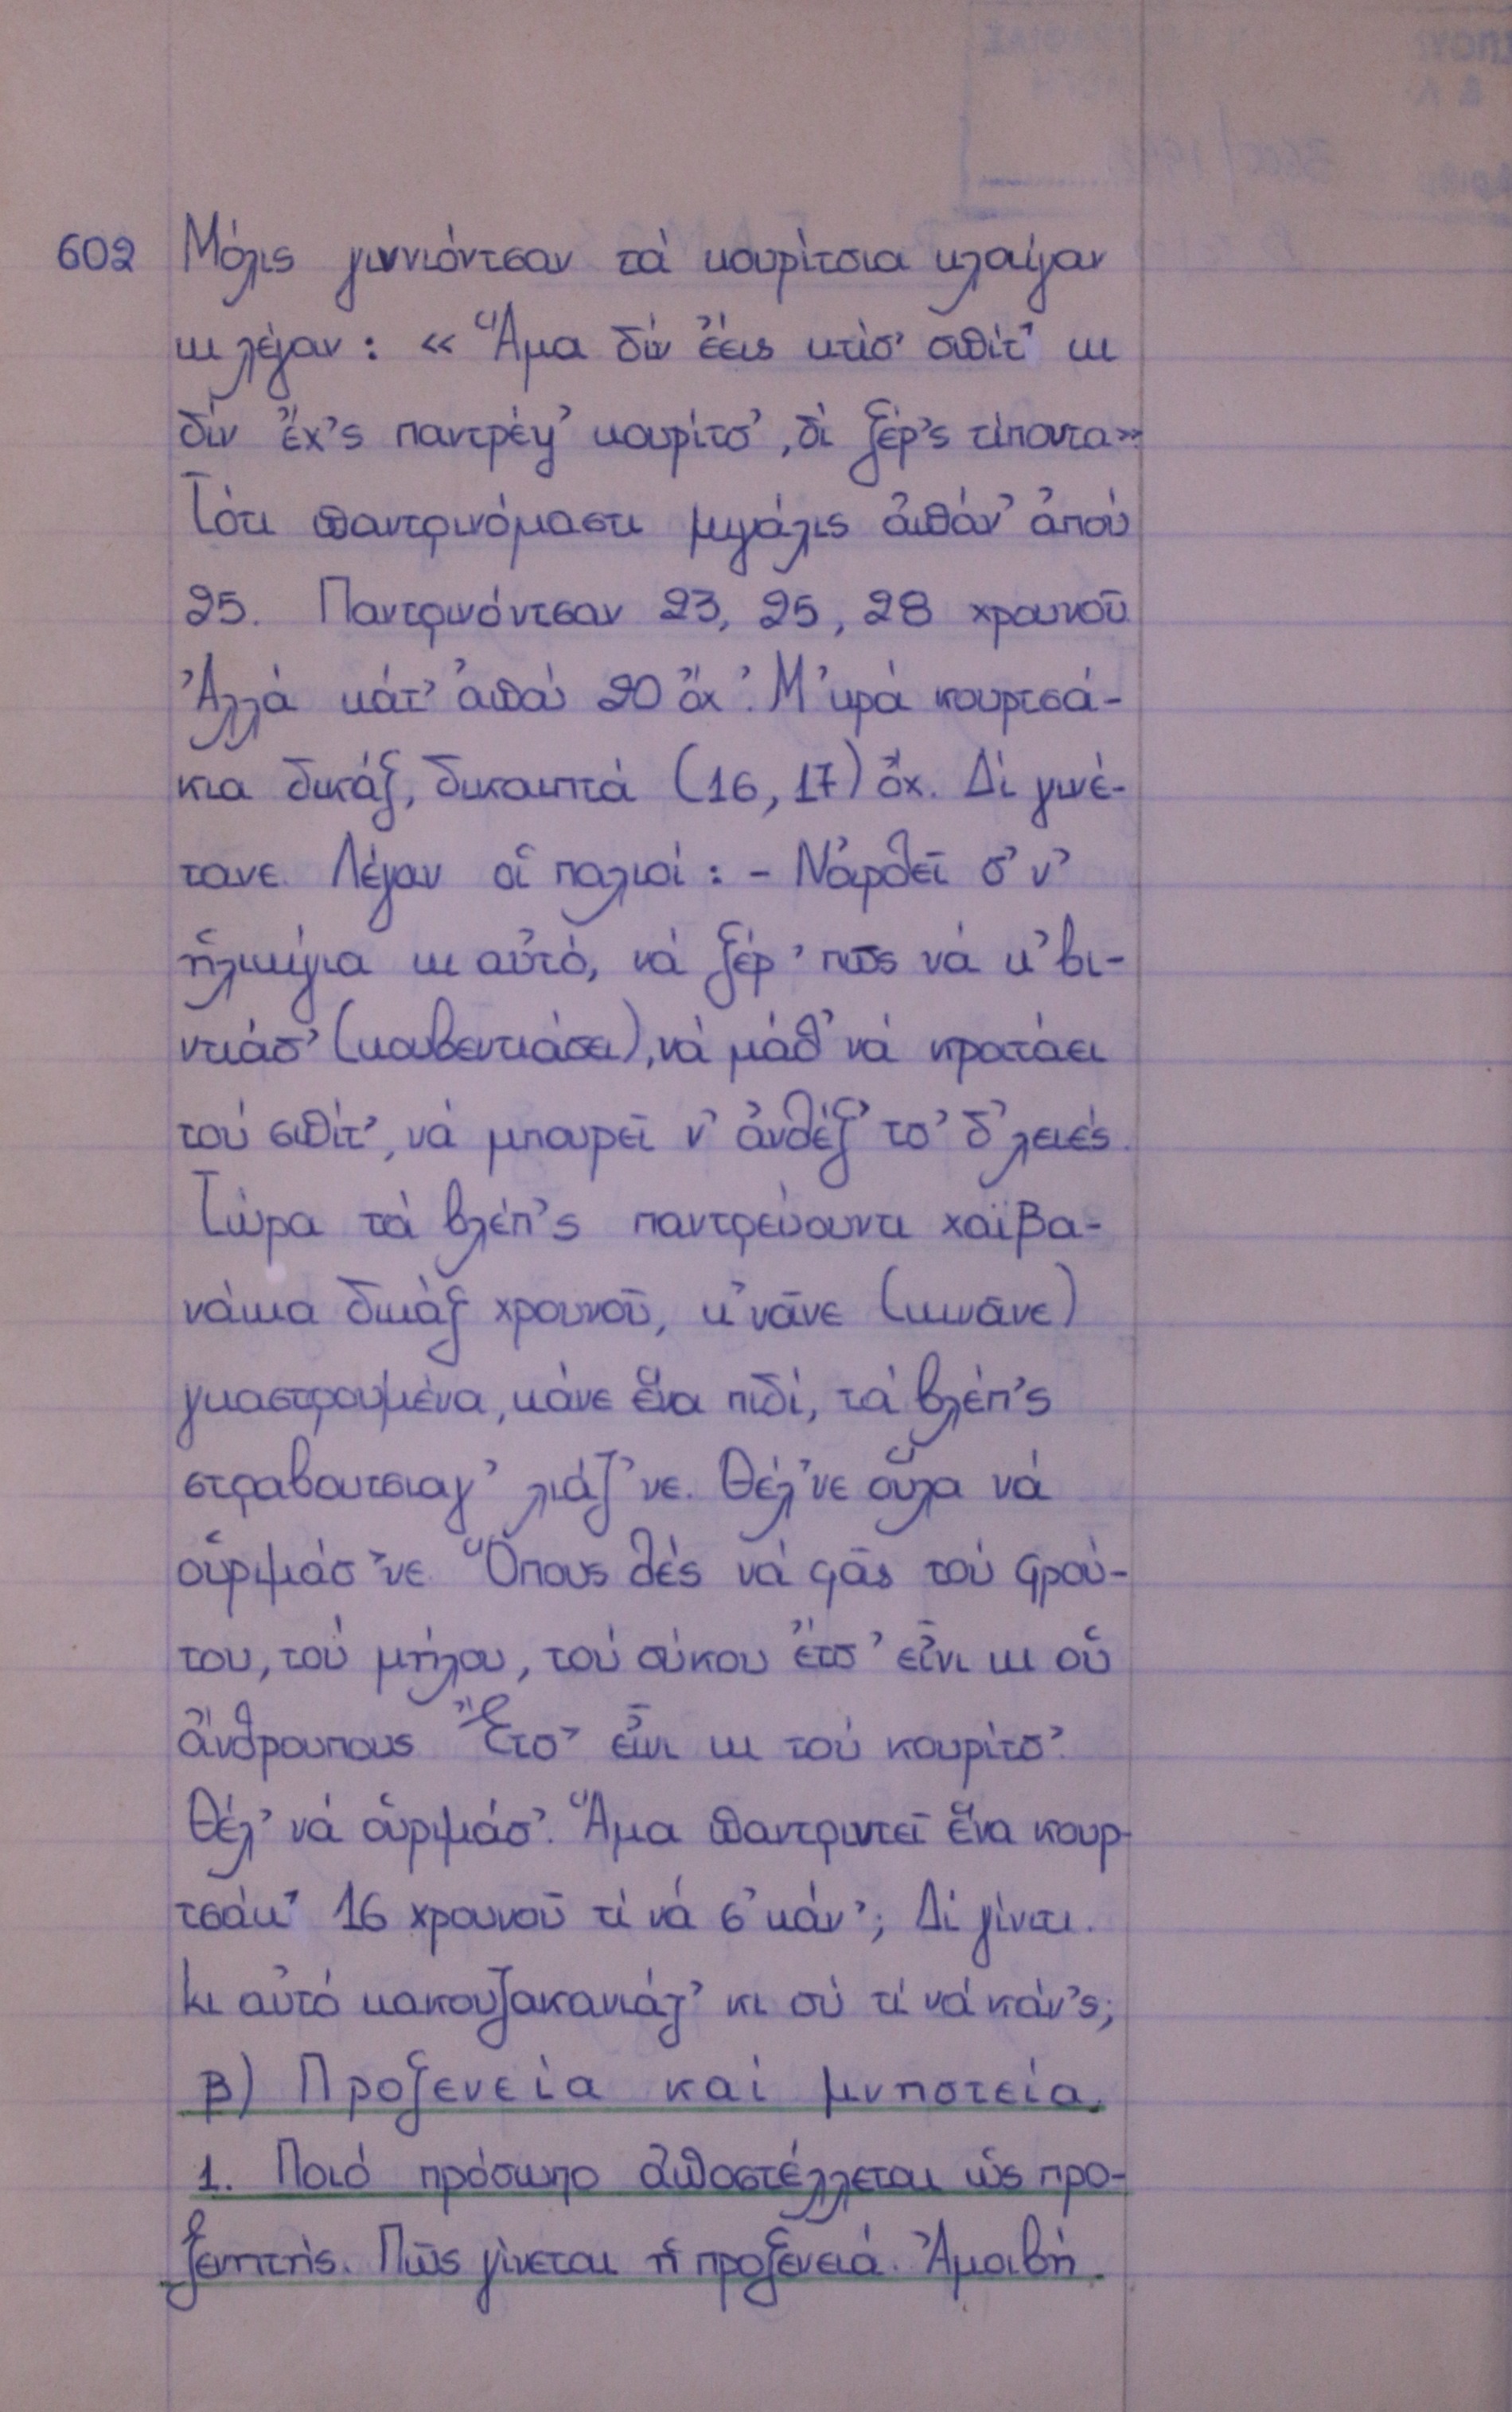 602 Μόλις γιννιόντσαν τά κουρίτσια κλαίγαν
κι λέγαν : « Ἅμα δίν ἔεις κτίσ' σπίτ' κι
δίν ἔχ'ς παντρέψ' κουρίτσ', δί ξέρ'ς τίπουτα»
Τότι παντρινόμαστι μιγάλις ἀπάν' ἀπού
25. Παντρινόντσαν 23, 25, 28 χρουνοῦ
Ἀλλά κάτ' ἀπού 20 ὄχ'. Μ'κρά κουρτσά-
κια δικάξ, δικαιπτά (16, 17) ὄχ. Δί γινέ-
τανε. Λέγαν οἱ παλιοί : - Νἀρθεῖ σ' ν'
ἡλικίγια κι αὐτό, νά ξέρ' πῶς νά κ'βι-
ντιάσ' (κουβεντιάσει), νά μάθ' νά κρατάει
τού σπίτ', νά μπουρεῖ ν' ἀνθέξ' τσ' δ'λειές.
Τώρα τά βλέπ'ς παντρεύουντι χαϊβα-
νάκια δικάξ χρουνοῦ, κ'νᾶνε (κινᾶνε)
γκαστρουμένα, κάνε ἕνα πιδί, τά βλέπ'ς
στραβουτσιαγ' λιάζ'νε. Θέλ'νε οὗλα νά
οὑριμάσ'νε. Ὅπους θές νά φᾶς τού φρού-
του, τού μήλου, τού σύκου ἔτσ' εἶνι κι οὑ
ἄνθρουπους. Ἔτσ' εἶνι κι τού κουρίτσ'.
Θέλ' νά οὑριμάσ'. Ἅμα παντριυτεῖ ἕνα κουρ-
τσάκ' 16 χρουνοῦ τί νά σ' κάν'; Δί γίνιτι.
Κι αὐτό κακουζακανιάζ' κι σύ τί νά κάν'ς;
β) Προξενεία καί μνηστεία.
1. Ποιό πρόσωπο ἀποστέλλεται ὡς προ-
ξενητής. Πῶς γίνεται ἡ προξενειά. Ἀμοιβή.